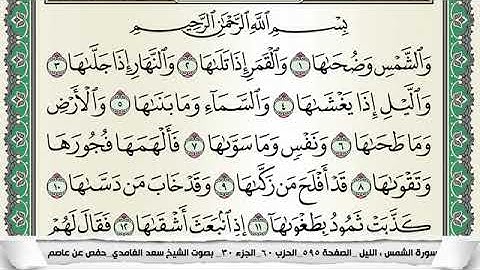 بِسْمِ ٱللَّهِ ٱلرَّحْمَٰنِ ٱلرَّحِيمِ
وَٱلشَّمْسِ وَضُحَىٰهَا ١ وَٱلْقَمَرِ إِذَا تَلَىٰهَا ٢ وَٱلنَّهَارِ إِذَا جَلَّىٰهَا ٣
وَٱلَّيْلِ إِذَا يَغْشَىٰهَا ٤ وَٱلسَّمَآءِ وَمَا بَنَىٰهَا ٥ وَٱلْأَرْضِ
وَمَا طَحَىٰهَا ٦ وَنَفْسٍ وَمَا سَوَّىٰهَا ٧ فَأَلْهَمَهَا فُجُورَهَا
وَتَقْوَىٰهَا ٨ قَدْ أَفْلَحَ مَن زَكَّىٰهَا ٩ وَقَدْ خَابَ مَن دَسَّىٰهَا ١٠
كَذَّبَتْ ثَمُودُ بِطَغْوَىٰهَآ ١١ إِذِ ٱنۢبَعَثَ أَشْقَىٰهَا ١٢ فَقَالَ لَهُمْ
سورة الشمس ، الليل _ الصفحة ٥٩٥ _ الحزب ٦٠ _ الجزء ٣٠ _ بصوت الشيخ سعد الغامدي _ حفص عن عاصم